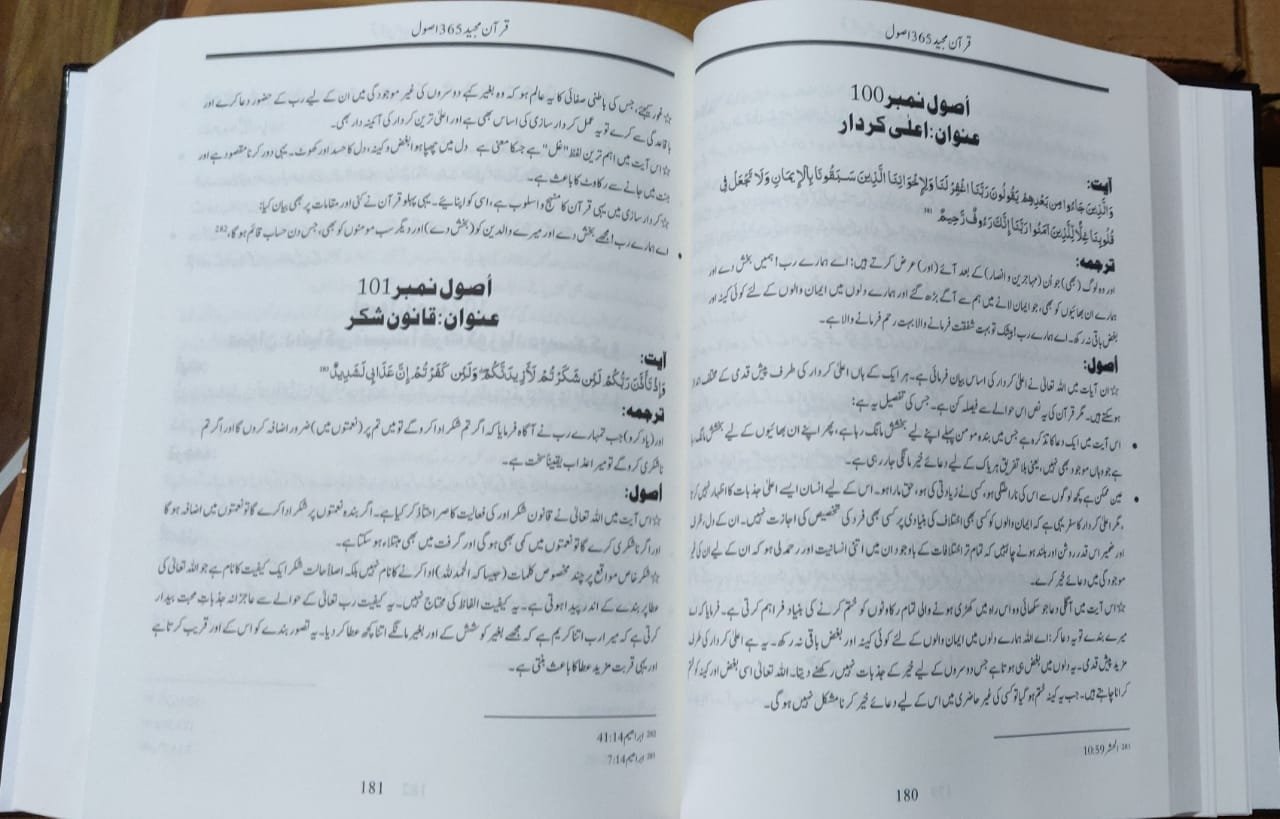 قرآن مجید 365 اصول
أصول نمبر 100
عنوان: اعلٰی کردار
آیت:
وَالَّذِينَ جَاءُوا مِن بَعْدِهِمْ يَقُولُونَ رَبَّنَا اغْفِرْ لَنَا وَلِإِخْوَانِنَا الَّذِينَ سَبَقُونَا بِالْإِيمَانِ وَلَا تَجْعَلْ فِي
قُلُوبِنَا غِلًّا لِّلَّذِينَ آمَنُوا رَبَّنَا إِنَّكَ رَءُوفٌ رَّحِيمٌ
ترجمہ:
اور وہ لوگ (بھی) جو اُن (مہاجرین و انصار) کے بعد آئے (اور) عرض کرتے ہیں: اے ہمارے رب! ہمیں بخش دے اور
ہمارے ان بھائیوں کو بھی، جو ایمان لانے میں ہم سے آگے بڑھ گئے اور ہمارے دلوں میں ایمان والوں کے لئے کوئی کینہ اور
بغض باقی نہ رکھ۔ اے ہمارے رب! بیشک تو بہت شفقت فرمانے والا بہت رحم فرمانے والا ہے۔
اُصول:
☆ان آیات میں اللہ تعالی نے اعلیٰ کردار کی اساس بیان فرمائی ہے۔ ہر ایک کے ہاں اعلیٰ کردار کی طرف پیش قدمی کے مختلف
ہو سکتے ہیں۔ مگر قرآن کی یہ نص اس حوالے سے فیصلہ کن ہے۔ جس کی تفصیل یہ ہے:
• اس آیت میں ایک دعا کا تذکرہ ہے جس میں بندہ مومن پہلے اپنے لیے بخشش مانگ رہا ہے، پھر اپنے ان بھائیوں کے لیے بخشش مانگ
ہے جو وہاں موجود بھی نہیں، یعنی بلا تفریق ہر یاک کے لیے دعائے خیر مانگی جا رہی ہے۔
• عین ممکن ہے کچھ لوگوں سے اس کی ناراضگی ہو، کسی نے زیادتی کی ہو، حق مارا ہو۔ اس کے لیے انسان ایسے اعلیٰ جذبات کا اظہار نہیں
مگر اعلیٰ کردار کا سفر یہی ہے کہ ایمان والوں کو کسی بھی اختلاف کی بنیاد پر کسی بھی فرد کی تخصیص کی اجازت نہیں۔ ان کے دل،
اور ضمیر اس قدر روشن اور بلند ہونے چاہئیں کہ تمام تر اختلافات کے باوجود ان میں اتنی انسانیت اور رحمدلی ہو کہ ان کے لیے ان کی
موجودگی میں دعائے خیر کرے۔
☆اس آیت میں اگلی دعا جو سکھائی وہ اس راہ میں کھڑی ہونے والی تمام رکاوٹوں کو ختم کرنے کی بنیاد فراہم کرتی ہے۔ فرمایا کہ
میرے بندے تو یہ دعا کر: اے اللہ ہمارے دلوں میں ایمان والوں کے لئے کوئی کینہ اور بغض باقی نہ رکھ۔ یہ ہے اعلیٰ کردار کی طرف
مزید پیش قدمی۔ یہ دلوں میں بغض ہی ہوتا ہے جس دوسروں کے لیے خیر کے جذبات نہیں رکھنے دیتا۔ اللہ تعالی اسی بغض اور کینہ کو ختم
کرانا چاہتے ہیں۔ جب یہ کینہ ختم ہو گیا تو کسی کی غیر حاضری میں اس کے لیے دعائے خیر کرنا مشکل نہیں ہو گی۔
281 الحشر 10:59
180
قرآن مجید 365 اصول
☆غور کیجئے، جس کی باطنی صفائی کا یہ عالم ہو کہ وہ بغیر کہے دوسروں کی غیر موجودگی میں اُن کے لیے رب کے حضور دعا کرے اور
باقاعدگی سے کرے تو یہ عمل کردار سازی کی اساس بھی ہے اور اعلیٰ ترین کردار کی آئینہ دار بھی۔
☆اس آیت میں اہم ترین لفظ "غل" ہے جسکا معنی ہے دل میں چھپا ہوا بغض و کینہ، دل کا حسد اور کھوٹ۔ یہی دور کرنا مقصود ہے اور
جنت میں جانے سے رکاوٹ کا باعث ہے۔
☆کردار سازی میں یہی قرآن کا منہج و اسلوب ہے، اسی کو اپنائیے۔ یہی پہلو قرآن نے کئی اور مقامات پر بھی بیان کیا:
• اے ہمارے رب! مجھے بخش دے اور میرے والدین کو (بخش دے) اور دیگر سب مومنوں کو بھی، جس دن حساب قائم ہو گا، 282
أصول نمبر 101
عنوان: قانون شکر
آیت:
وَإِذْ تَأَذَّنَ رَبُّكُمْ لَئِن شَكَرْتُمْ لَأَزِيدَنَّكُمْ وَلَئِن كَفَرْتُمْ إِنَّ عَذَابِي لَشَدِيدٌ
ترجمہ:
اور (یاد کرو) جب تمہارے رب نے آگاہ فرمایا کہ اگر تم شکر ادا کرو گے تو میں تم پر (نعمتوں میں) ضرور اضافہ کروں گا اور اگر تم
ناشکری کرو گے تو میرا عذاب یقیناً سخت ہے۔
اُصول:
☆اس آیت میں اللہ تعالی نے قانون شکر اور کی فعالیت کا صراحتاً ذکر کیا ہے۔ اگر بندہ نعمتوں پر شکر ادا کرے گا تو نعمتوں میں اضافہ ہو گا
اور اگر ناشکری کرے گا تو نعمتوں میں کمی بھی ہو گی اور گرفت میں بھی مبتلاء ہو سکتا ہے۔
☆شکر خاص مواقع پر چند مخصوص کلمات (جیسا کہ الحمد للہ) ادا کرنے کا نام نہیں بلکہ اصلا حالت شکر ایک کیفیت کا نام ہے جو اللہ تعالی کی
عطا پر بندے کے اندر پیدا ہوتی ہے۔ یہ کیفیت الفاظ کی محتاج نہیں۔ یہ کیفیت رب تعالی کے حوالے سے عاجزانہ جذباتِ محبت بیدار
کرتی ہے کہ میرا رب اتنا کریم ہے کہ مجھے بغیر کوشش کے اور بغیر مانگے اتنا کچھ عطا کر دیا۔ یہ تصور بندے کو اس کے اور قریب کرتا ہے
اور یہی قربت مزید عطا کا باعث بنتی ہے۔
282 ابراھیم 41:14
283 ابراھیم 7:14
181